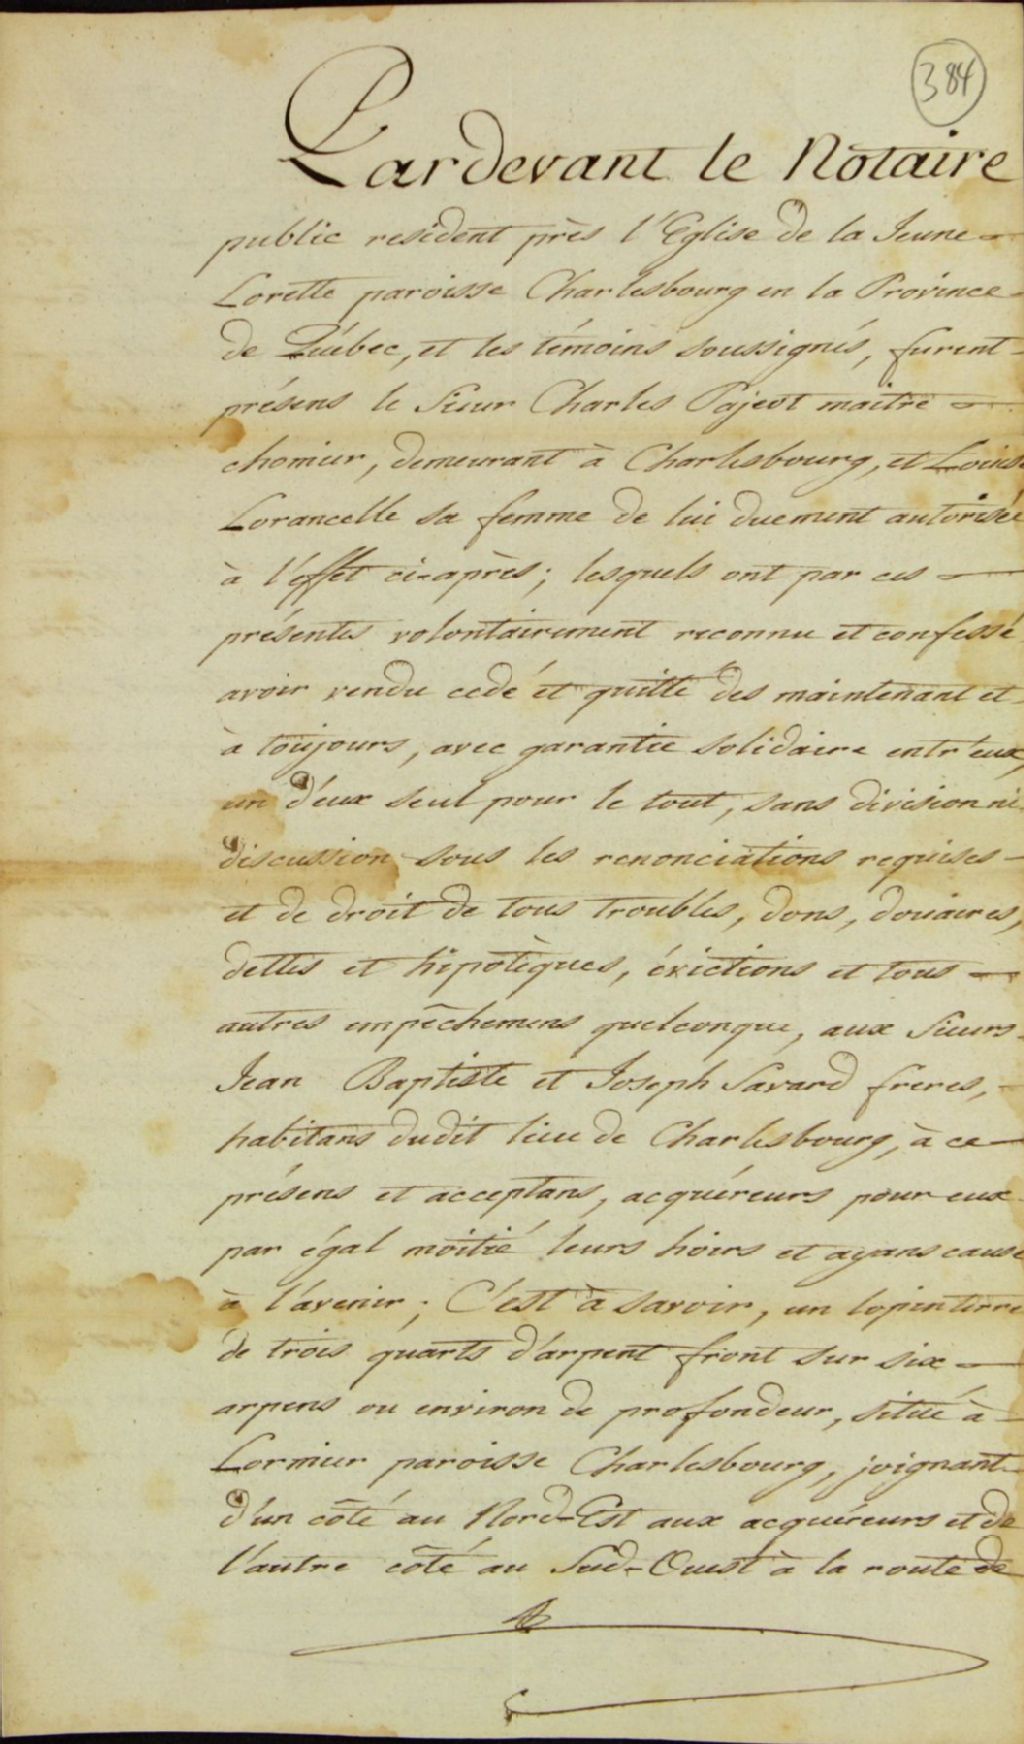 384
Pardevant le Notaire
public resident près l'Eglise de la Jeune
Lorette paroisse Charlesbourg en la Province
de Québec, et les témoins soussignés, furent
présens le Sieur Charles Pajeot maitre
chomier, demeurant à Charlesbourg, et Louise
Lorancelle sa femme de lui duement autorisée
à l'effet ci-après; lesquels ont par ces
présentes volontairement reconnu et confessé
avoir vendu cedé et quitté des maintenant et
à toujours, avec garantie solidaire entr'eux,
un d'eux seul pour le tout, sans division ni
discussion sous les renonciations requises
et de droit de tous troubles, dons, douaires,
dettes et hipotèques, évictions et tous
autres empêchemens quelconque, aux Sieurs
Jean Baptiste et Joseph Savard freres,
habitans dudit lieu de Charlesbourg, à ce
présens et acceptans, acquéreurs pour eux
par égal moitié leurs hoirs et ayans cause
à l'avenir; C'est à savoir, un lopin terre
de trois quarts d'arpent front sur six
arpens ou environ de profondeur, situé à
Lormier paroisse Charlesbourg, joignant
d'un côté au Nord-Est aux acquéreurs et de
l'autre côté au Sud-Ouest à la route de